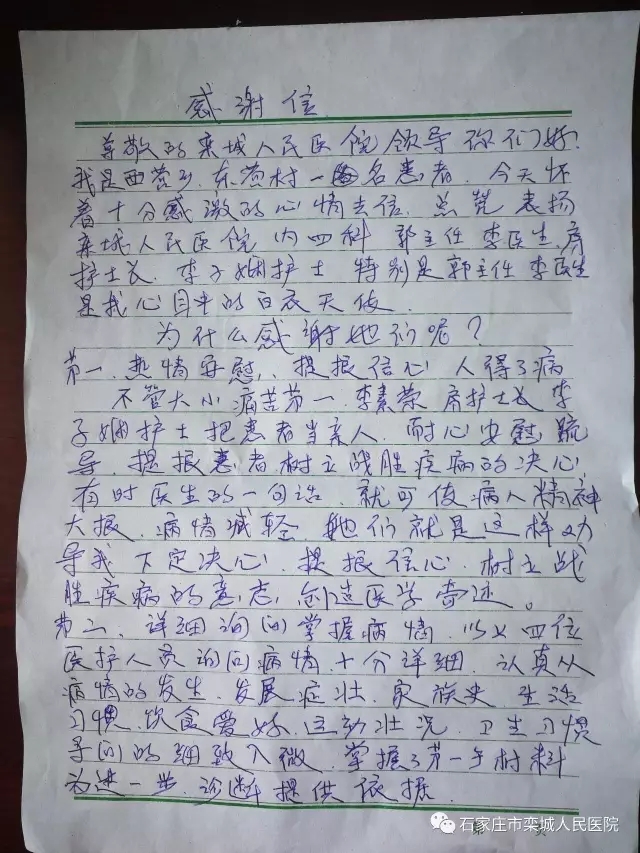 感谢信
尊敬的栾城人民医院领导你们好!
我是西营乡.东营村一名患者.今天怀
着十分感激的心情去信.总凭表扬
栾城人民医院内四科 郭主任 李医生.席
护士长.李子娴护士 特别是郭主任 李医生
是我心目中的白衣天使.
为什么感谢她们呢?
第一.热情安慰、提振信心 人得了病
不管大小痛苦第一.李素荣 席护士长 李
子娴护士把患者当亲人.耐心安慰疏
导.提振患者.树立战胜疾病的决心.
有时医生的一句话.就可使病人精神
大振.病情减轻.她们就是这样劝
导我 下定决心.提振信心.树立战
胜疾病的意志,创造医学奇迹。
第二、详细询问掌握病情.以上四位
医护人员询问病情.十分详细.认真从
病情的发生.发展症壮.家族史.生活
习惯.饮食爱好.运动壮况.卫生习惯
寻问的细致入微.掌握了第一手材料
为进一步.诊断提供依据.
第 页
石家庄市栾城人民医院